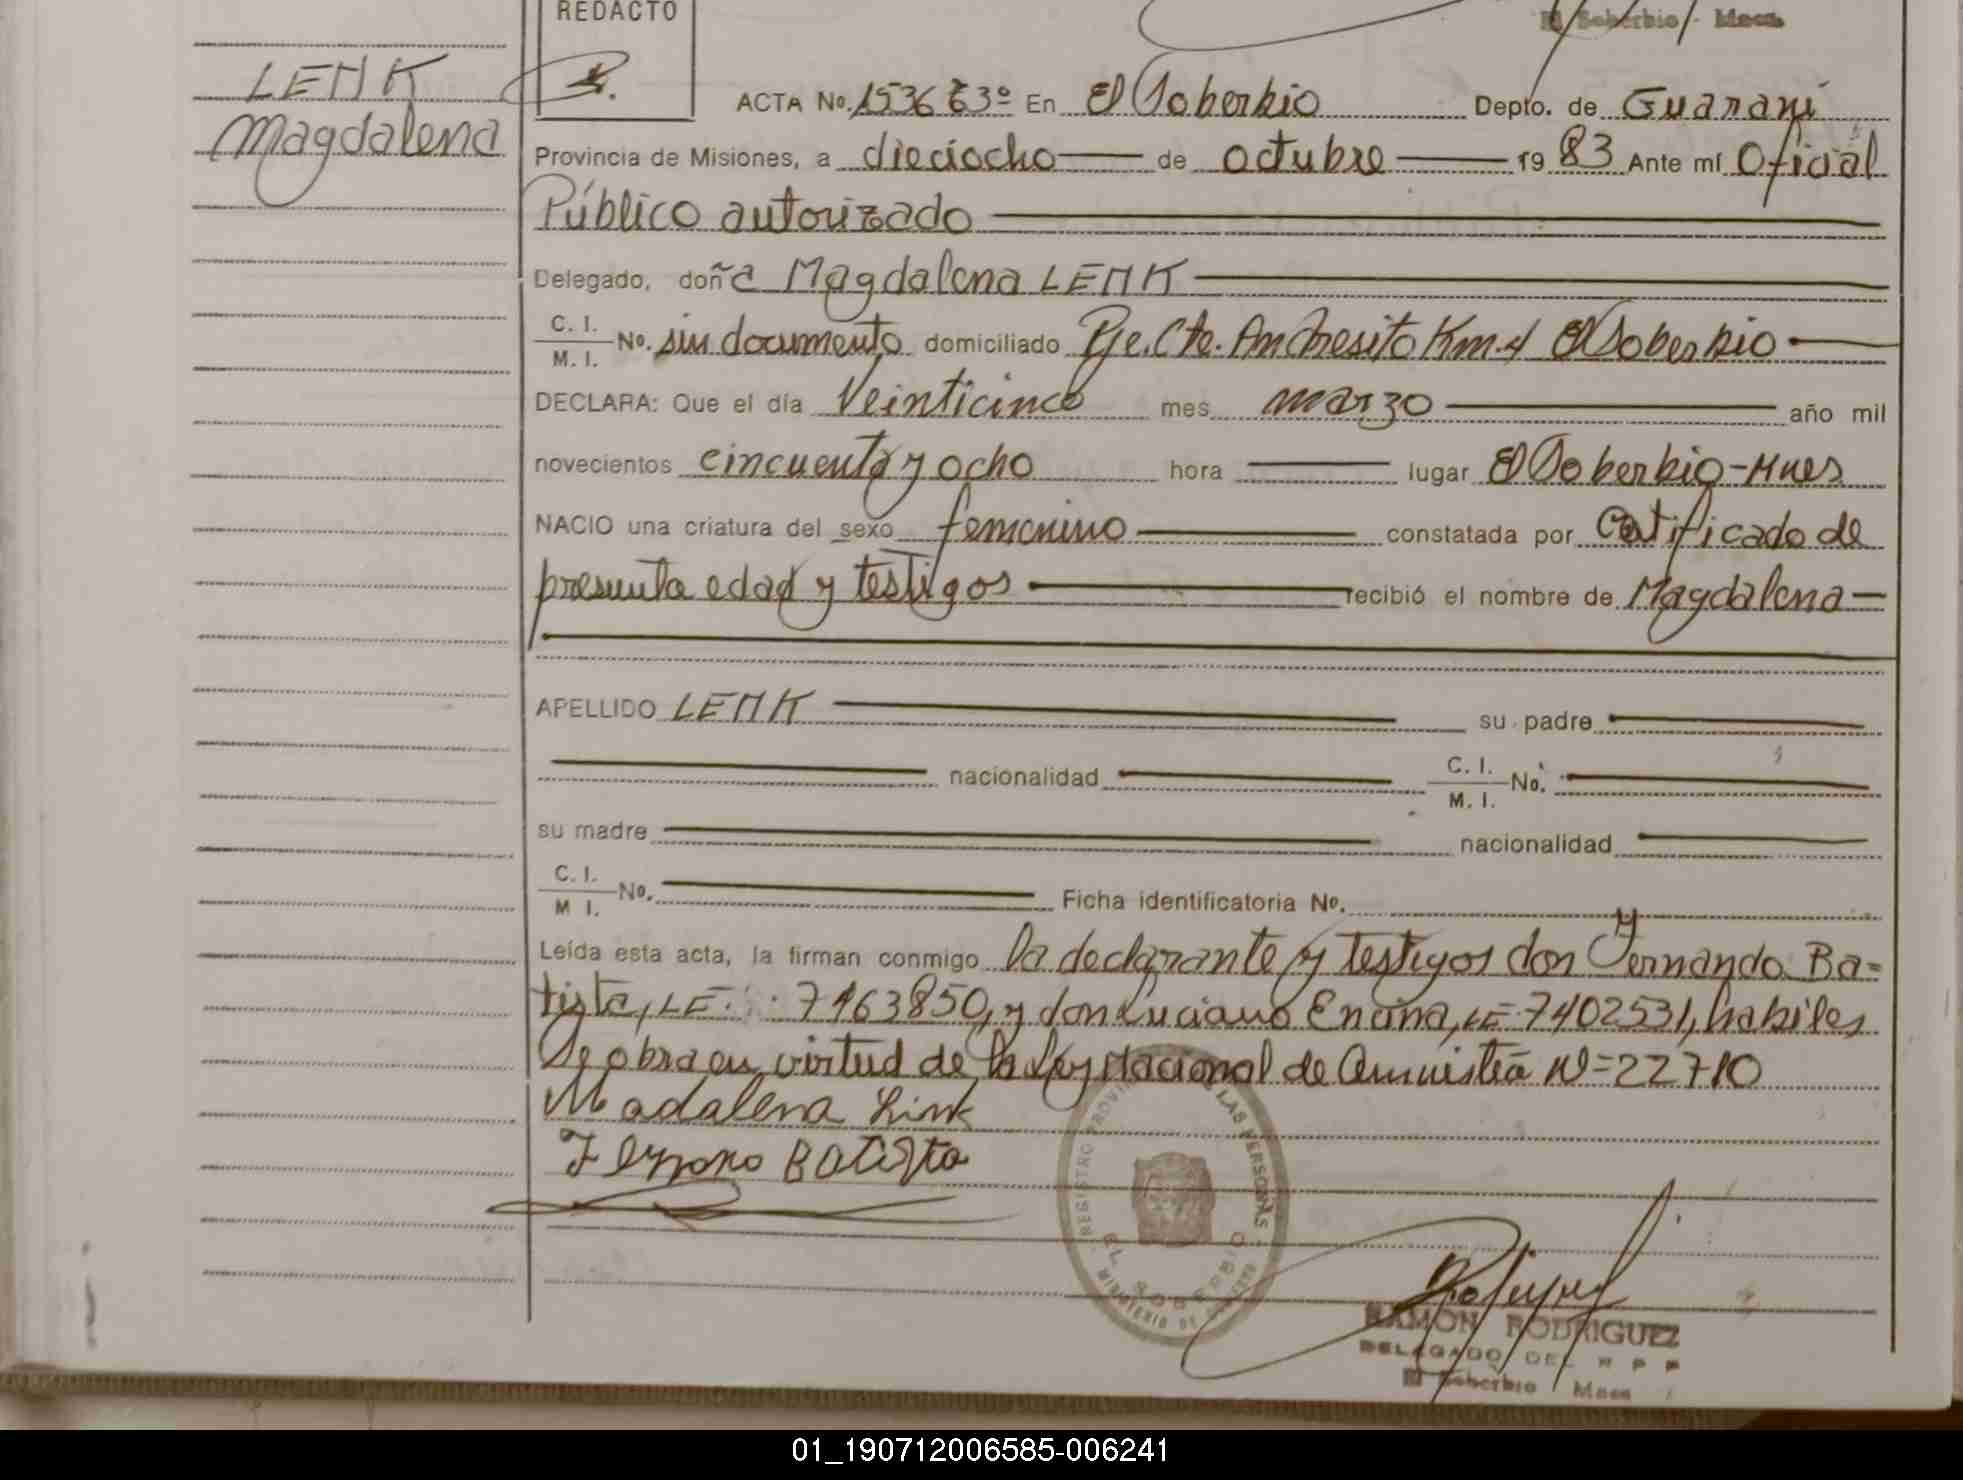 REDACTO
El Soberbio - Mnes.
LEMK
Magdalena
ACTA No. 1536 Tº 3º En El Soberbio Depto. de Guaraní
Provincia de Misiones, a dieciocho de octubre 1983 Ante mí Oficial
Público autorizado
Delegado, doña Magdalena LEMK
C. I.
M. I. No. sin documento domiciliado Pje. Cte. Andresito Km. 4 El Soberbio
DECLARA: Que el día Veinticinco mes marzo año mil
novecientos cincuenta y ocho hora lugar El Soberbio-Mnes
NACIO una criatura del sexo femenino constatada por Certificado de
presunta edad y testigos recibió el nombre de Magdalena
APELLIDO LEMK su padre
nacionalidad C. I.
M. I. No.
su madre nacionalidad
C. I.
M I. No. Ficha identificatoria No.
Leída esta acta, la firman conmigo la declarante y testigos don Hernando Ba=
tista, LE. 7463850, y don Luciano Encina, LE. 7402531, habiles
Se obra en virtud de la Ley Nacional de Amnistía Nº=22710
Madalena Link
REGISTRO PROVINCIAL DE LAS PERSONAS
EL SOBERBIO
MINISTERIO DE GOBIERNO
RAMON RODRIGUEZ
DELEGADO DEL R P P
El Soberbio Mnes
01_190712006585-006241